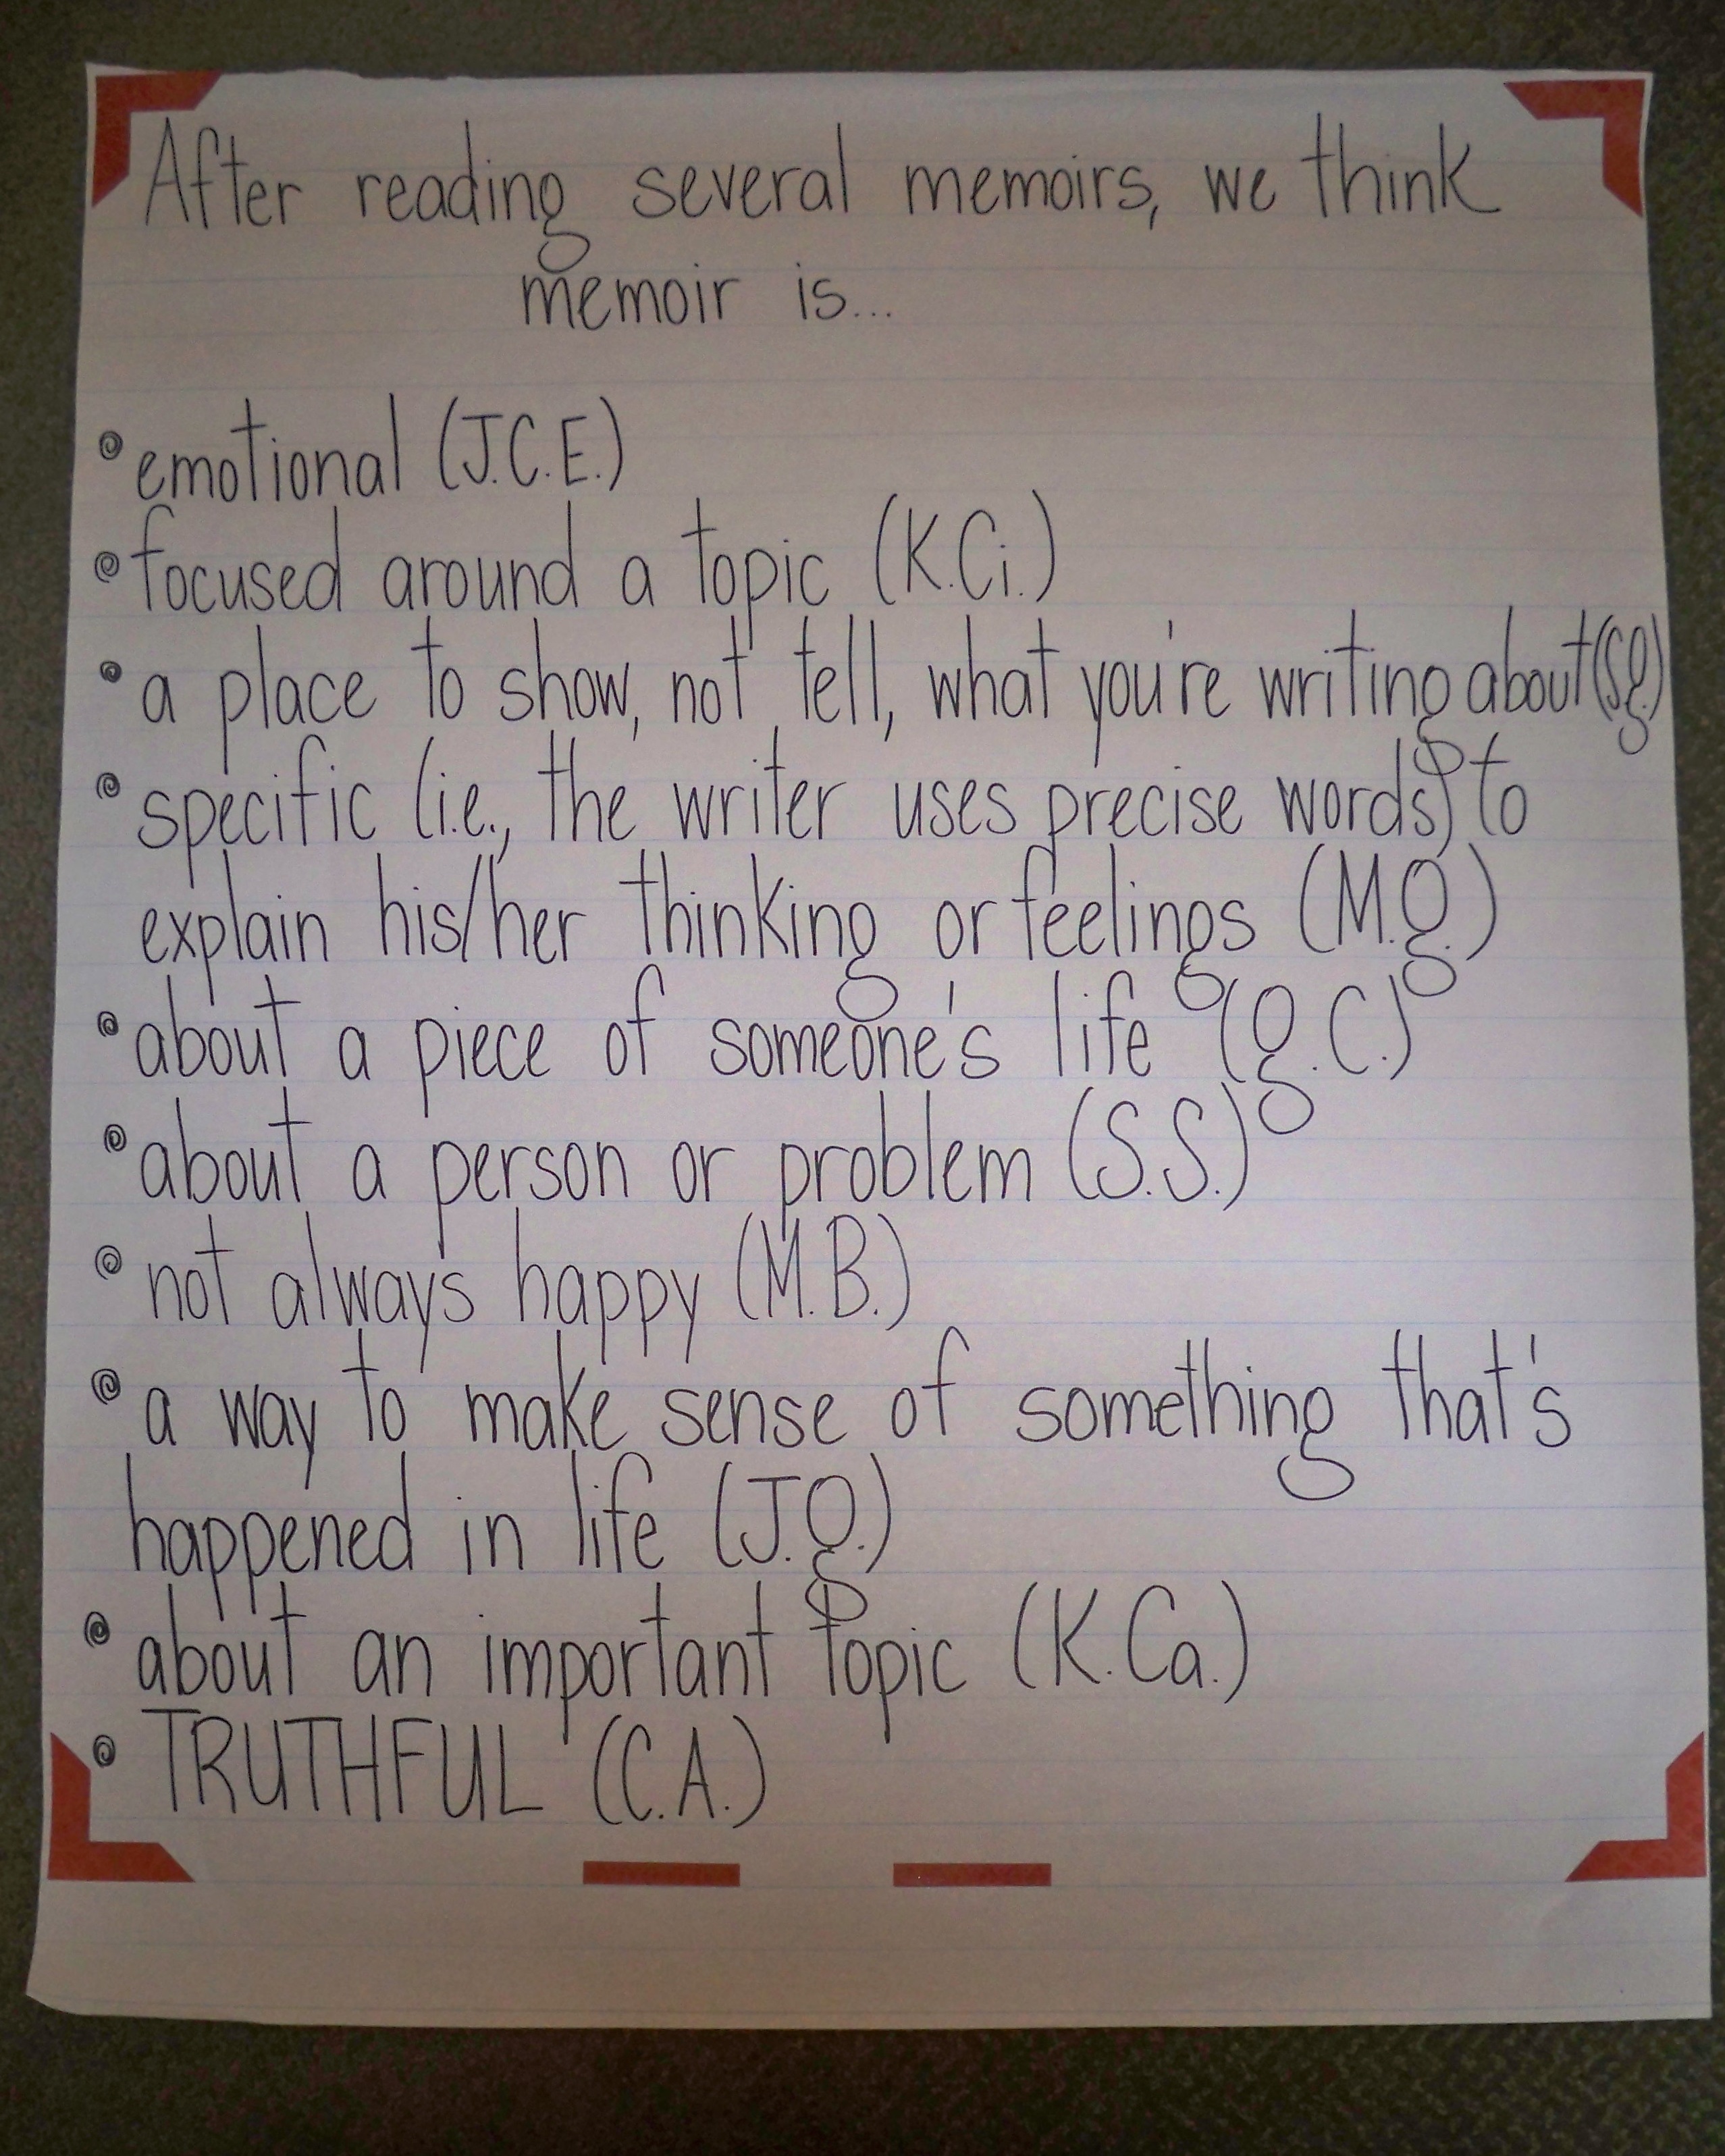 After reading several memoirs, we think
memoir is...
• emotional (J.C.E.)
• focused around a topic (K.Ci.)
• a place to show, not tell, what you're writing about (S.g.)
• specific (i.e., the writer uses precise words) to
explain his/her thinking or feelings (M.g.)
• about a piece of someone's life (g.C.)
• about a person or problem (S.S.)
• not always happy (M.B.)
• a way to make sense of something that's
happened in life (J.g.)
• about an important topic (K.Ca.)
• TRUTHFUL (C.A.)